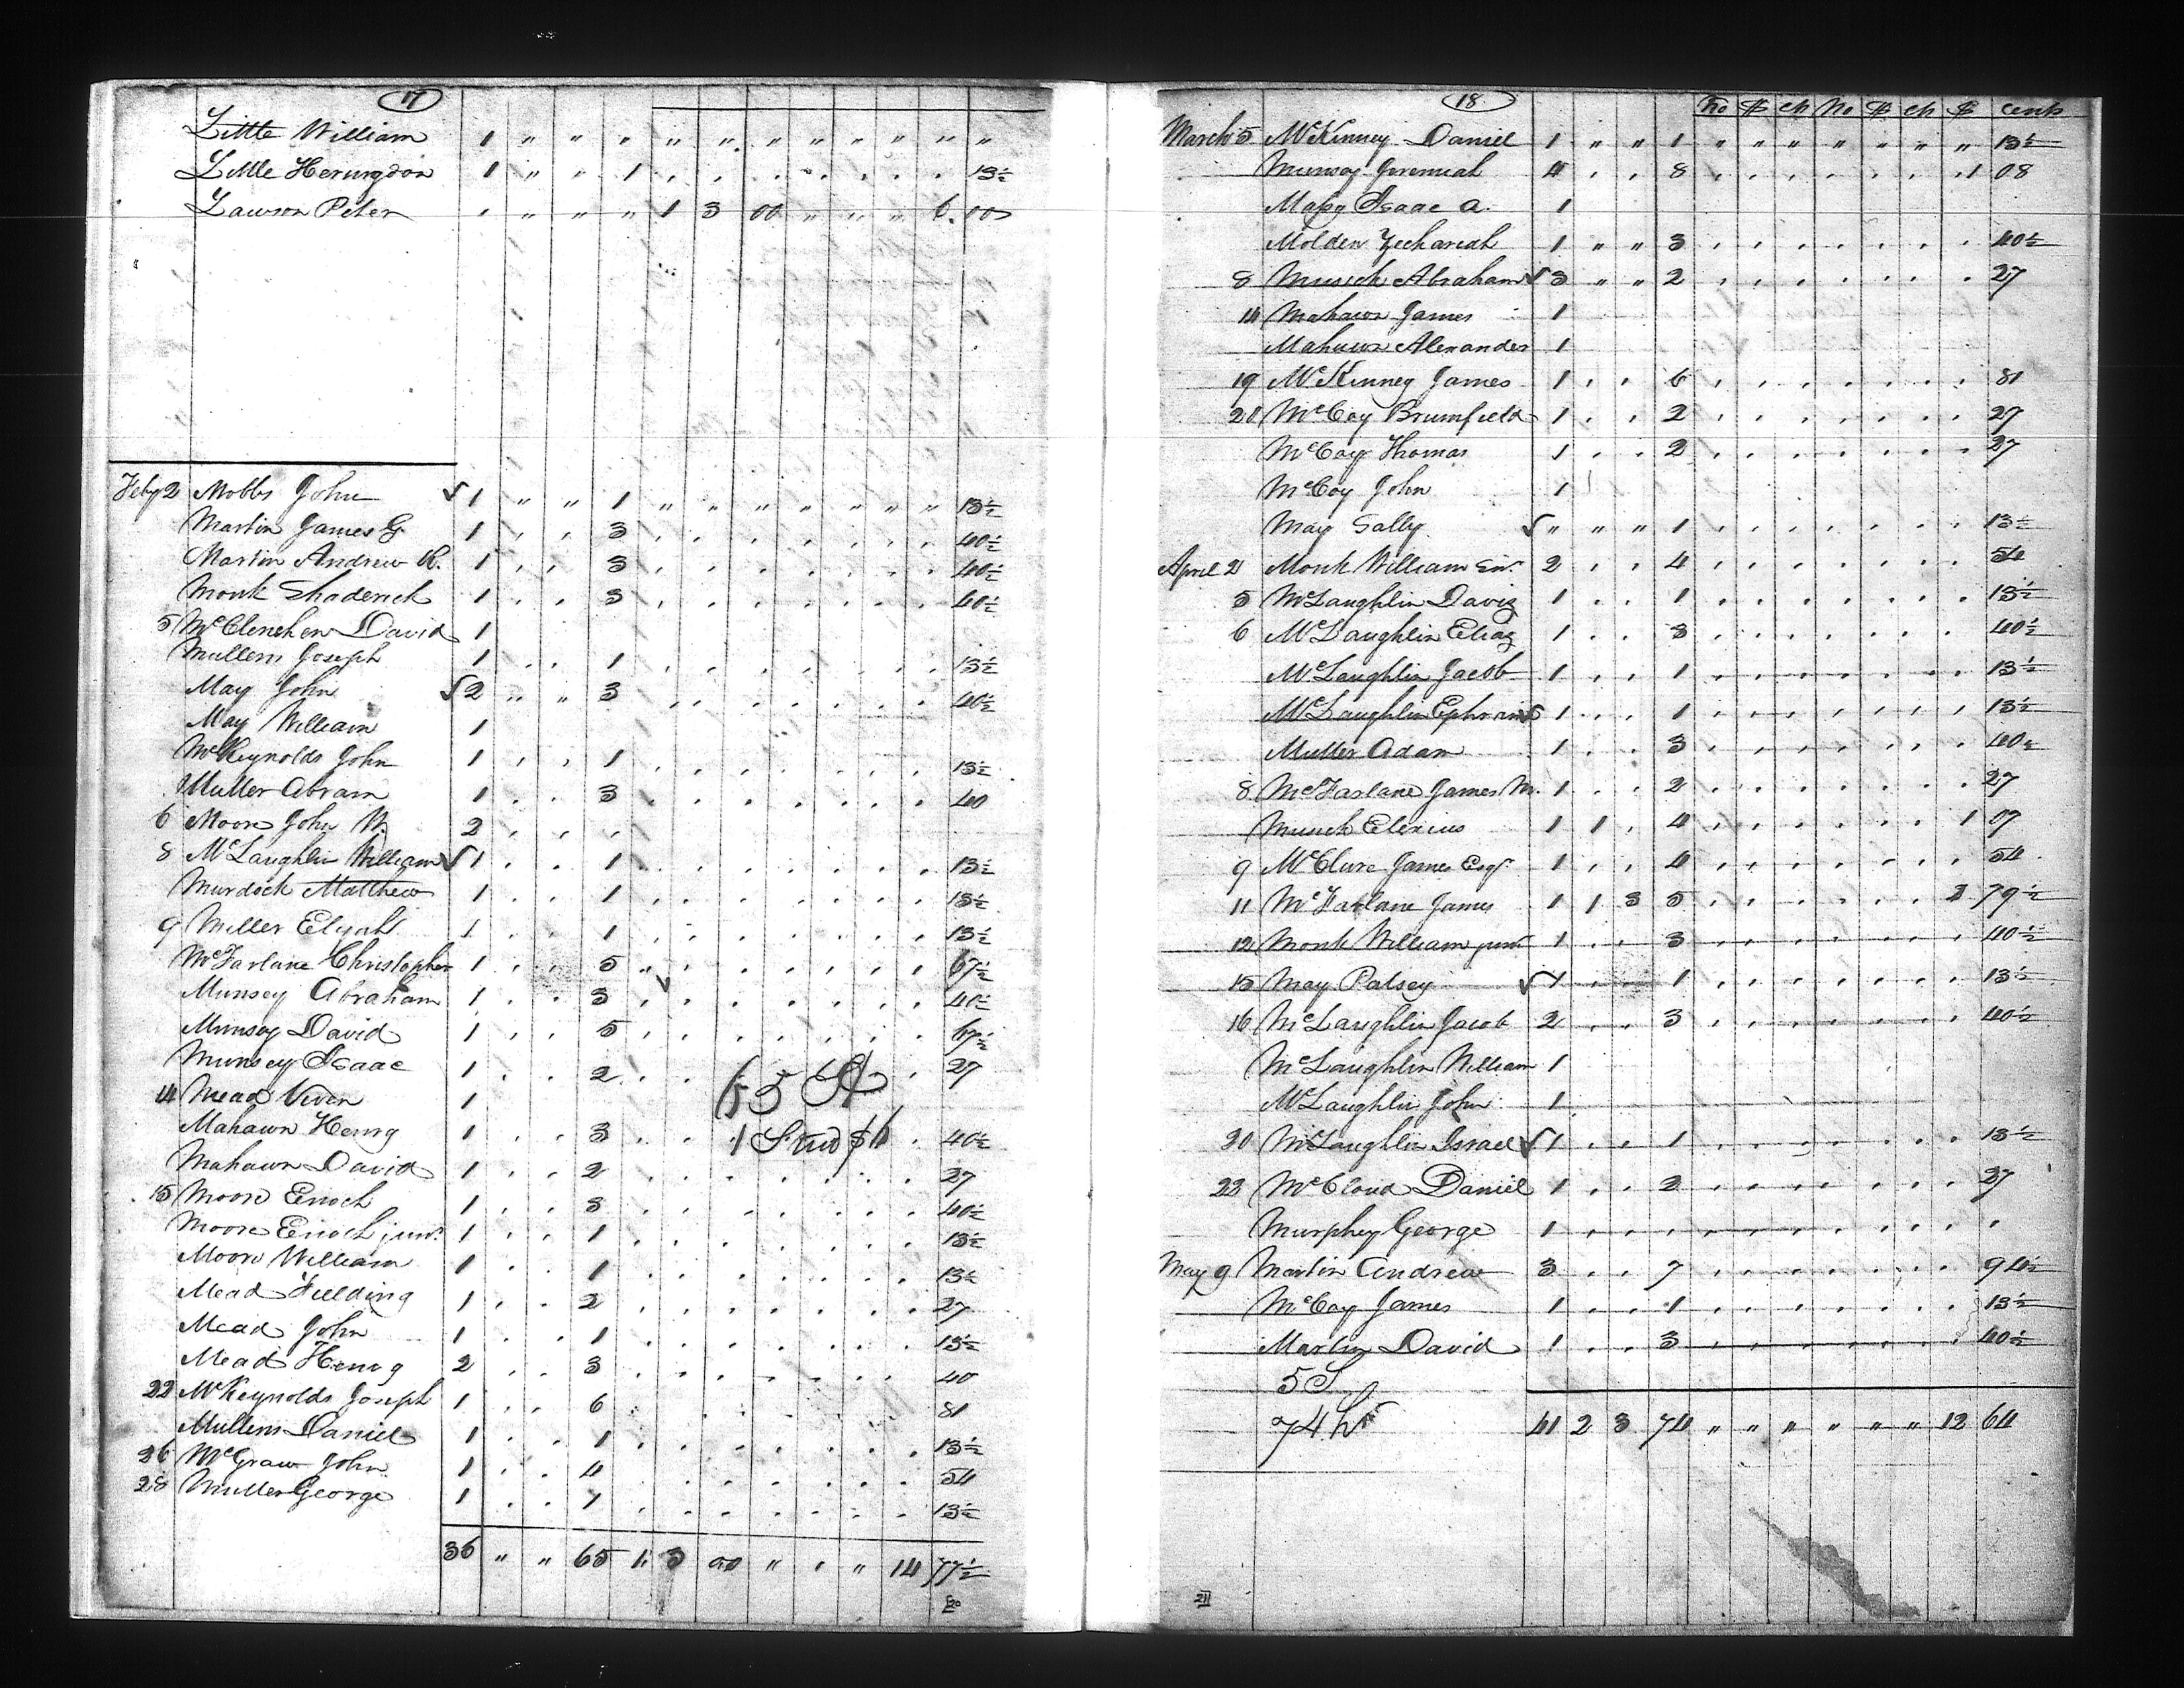 17
Little William 1 " " " " " " " " " " " "
Little Herungdon 1 " " 1 . . . . . . . 13½
Lawson Peter " " " " 1 3 00 " " " 6.00
Feby 2 Mobbs John √ 1 " " 1 " " " " " " " 13½
Martin James G 1 . . 3 . . . . . . . 40½
Martin Andrew R. 1 . . 3 . . . . . . . 40½
Monk Shaderick 1 . . 3 . . . . . . . 40½
5 McClenehen David 1
Mullens Joseph 1 . . 1 . . . . . . . 13½
May John √ 2 " " 3 . . . . . . . 40½
May William 1
McReynolds John 1 . . 1 . . . . . . . 13½
Muller Abram 1 . . 3 . . . . . . . 40
6 Moore John W. 2 . . .
8 McLaughlin William √ 1 . . 1 . . . . . . . 13½
Murdock Matthew 1 . . 1 . . . . . . . 13½
9 Miller Elijah 1 . . 1 . . . . . . . 13½
McFarlane Christopher 1 . . 5 . . . . . . . 67½
Munsey Abraham 1 . . 3 √ . . . . . . 40½
Munsey David 1 . . 5 . . . . . . . 67½
Munsey Isaac 1 . . 2 . . . 27
65 H
14 Mead 1
Mahawn Henry 1 . . 3 . . 40½
1 Stud $6
Mahawn David 1 . . 2 . . . . . . . 27
15 Moore Enoch 1 . . 3 . . . . . . . 40½
Moore Enoch junr. 1 . . 1 . . . . . . . 13½
Moore William 1 . . 1 . . . . . . . 13½
Mead Fielding 1 . . 2 . . . . . . . 27
Mead John 1 . . 1 . . . . . . . 13½
Mead Henry 2 . . 3 . . . . . . . 40
22 McReynolds Joseph 1 . . 6 . . . . . . . 81
Mullens Daniel 1 . . 1 . . . . . . . 13½
26 McGraw John 1 . . 4 . . . . . . . 54
28 Muller George 1 . . 1 . . . . . . . 13½
36 " " 65 1 3 00 " " " 14 77½
18
No $ cts No $ cts $ cents
March 5 McKinney Daniel 1 " " 1 " " " " " " " 13½
Munsey Jeremiah 4 . . 8 . . . . . . 1 08
Isaac A. 1
Molden Zechariah 1 " " 3 . . . . . . . 40½
8 Musick Abraham √ 3 " " 2 . . . . . . . 27
14 Mahawn James 1
Mahawn Alexander 1
19 McKinney James 1 . . 6 . . . . . . . 81
20 McCoy Brumfield 1 . . 2 . . . . . . . 27
McCoy Thomas 1 . . 2 . . . . . . . 27
McCoy John 1
May Sally √ " " " 1 . . . . . . . 13½
April 2 Monk William Snr. 2 . . 4 . . . . . . . 54
5 McLaughlin David 1 . . 1 . . . . . . . 13½
6 McLaughlin Elias 1 . . 3 . . . . . . . 40½
McLaughlin Jacob 1 . . 1 . . . . . . . 13½
McLaughlin Ephraim √ 1 . . 1 . . . . . . . 13½
Muller Adam 1 . . 3 . . . . . . . 40½
8 McFarlane James M. 1 . . 2 . . . . . . . 27
Musick Elexius 1 1 . 4 . . . . . . 1 07
9 McClure James Esqr. 1 . . 4 . . . . . . . 54
11 McFarlane James 1 1 3 5 . . . . . . 2 79½
12 Monk William junr. 1 . . 3 . . . . . . . 40½
15 May Patsey √ 1 . . 1 . . . . . . . 13½
16 McLaughlin Jacob 2 . . 3 . . . . . . . 40½
McLaughlin William 1
McLaughlin John 1
20 McLaughlin Israel √ 1 . . 1 . . . . . . . 13½
22 McCloud Daniel 1 . . 2 . . . . . . . 27
Murphey George 1 . . . . . . . . . . .
May 9 Martin Andrew 3 . . 7 . . . . . . . 94½
McCoy James 1 . . 1 . . . . . . . 13½
Martin David 1 . . 3 . . . . . . . 40½
5 S
74 hs 41 2 3 74 " " " " " " 12 64